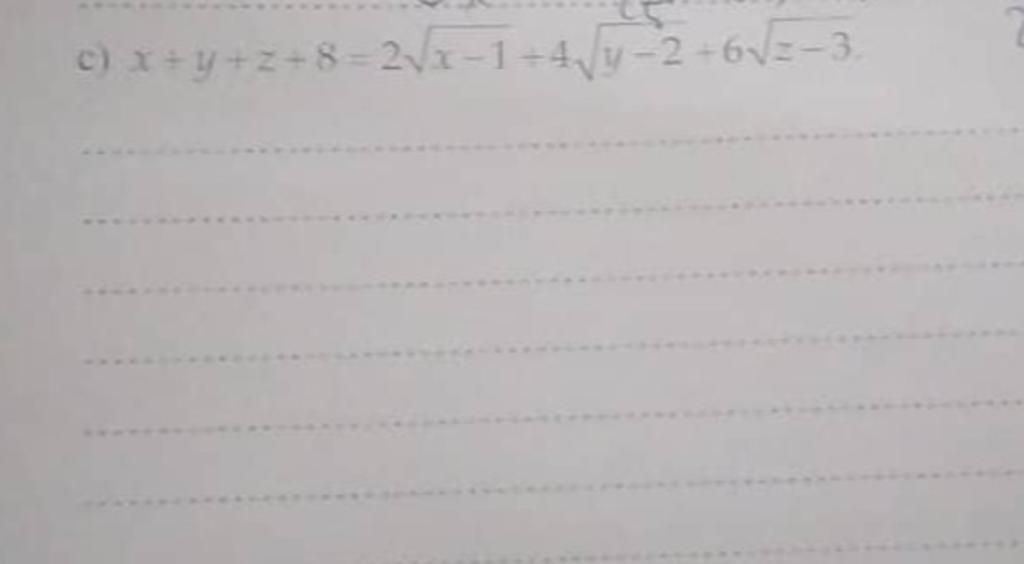 c) x + y + z + 8 = 2√(x−1) + 4√(y−2) + 6√(z−3).